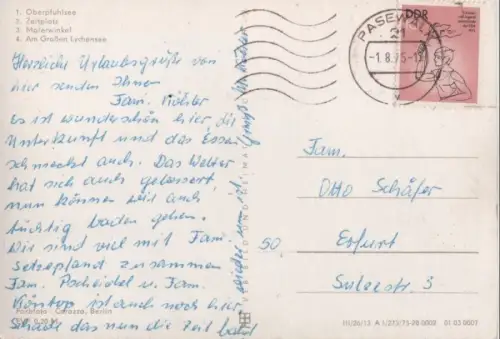 1. Oberpfuhlsee
2. Zeltplatz
3. Malerwinkel
4. Am Großen Lychensee
Herzliche Urlaubsgrüße von
hier senden Ihnen
Fam. Richter
Es ist wunderschön hier, die
Unterkunft und das Essen
schmeckt auch. Das Wetter
hat sich auch gebessert,
nun können wir auch
tüchtig baden gehen.
Wir sind viel mit Fam.
zusammen
Fam. u. Fam.
ist auch noch hier
Schade das nun die Zeit bald
wieder um ist.
DDR
PASEWALK
21
-1.8.75-1
Fam.
Otto Schäfer
50 Erfurt
3
Berlin
III/26/13 A 1/275/75-28 0002 01 03 0003